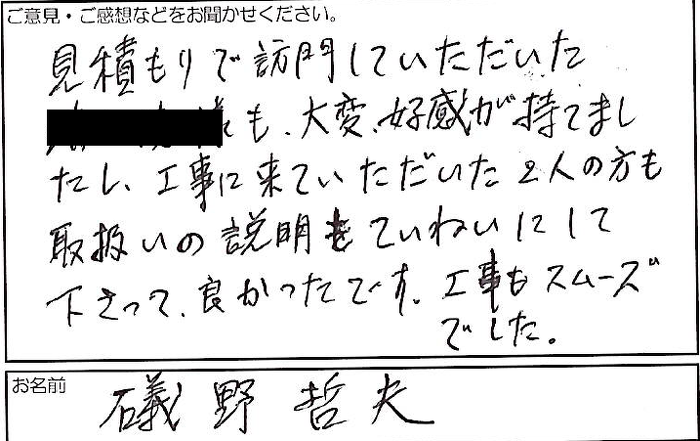 ご意見・ご感想などをお聞かせください。
見積もりで訪問していただいた
様も、大変、好感が持てまし
たし、工事に来ていただいた2人の方も
取扱いの説明もていねいにして
下さって、良かったです。工事もスムーズ
でした。
お名前
礒野哲夫